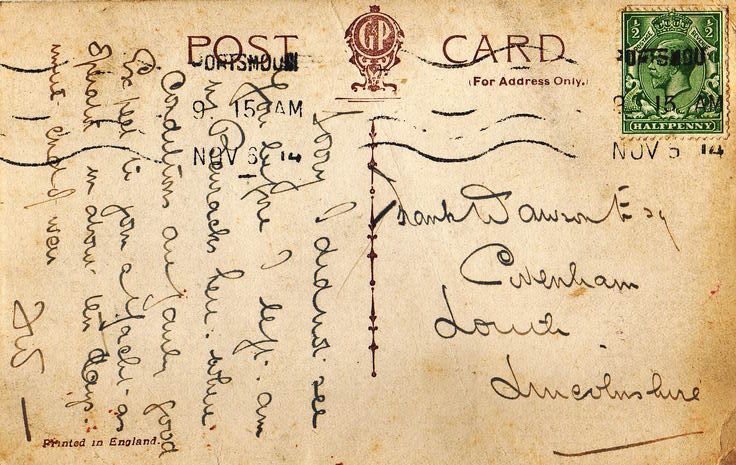 POST CARD
GP
(For Address Only.)
PORTSMOUTH
9 15 AM
NOV 6 14
PORTSMOU
9 15 AM
NOV 6 14
1/2 1/2
HALFPENNY
Sorry I did not see
you before I left. am
in Barracks here where
Conditions are fairly good
Expect to join a Yacht as
in about ten days.
Frank Dawson Esq
Covenham
Louth
Lincolnshire
Printed in England.